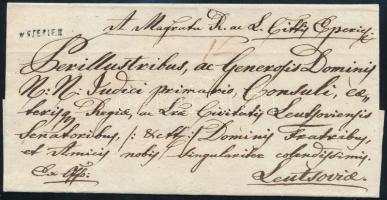 A Magratu R. ac L. Cittis Eperies.
W EPERIES
Perillustribus, ac Generosis Dominis
N: N: Judici primario, Consuli, cae
teris Regiae, ac Lrae Civitatis Leutsoviensis
Senatoribus, /: &ctt :/ Dominis Fratribus,
et Amicis nobis singulariter colendissimis.
Ex Offo:
Leutsoviae.